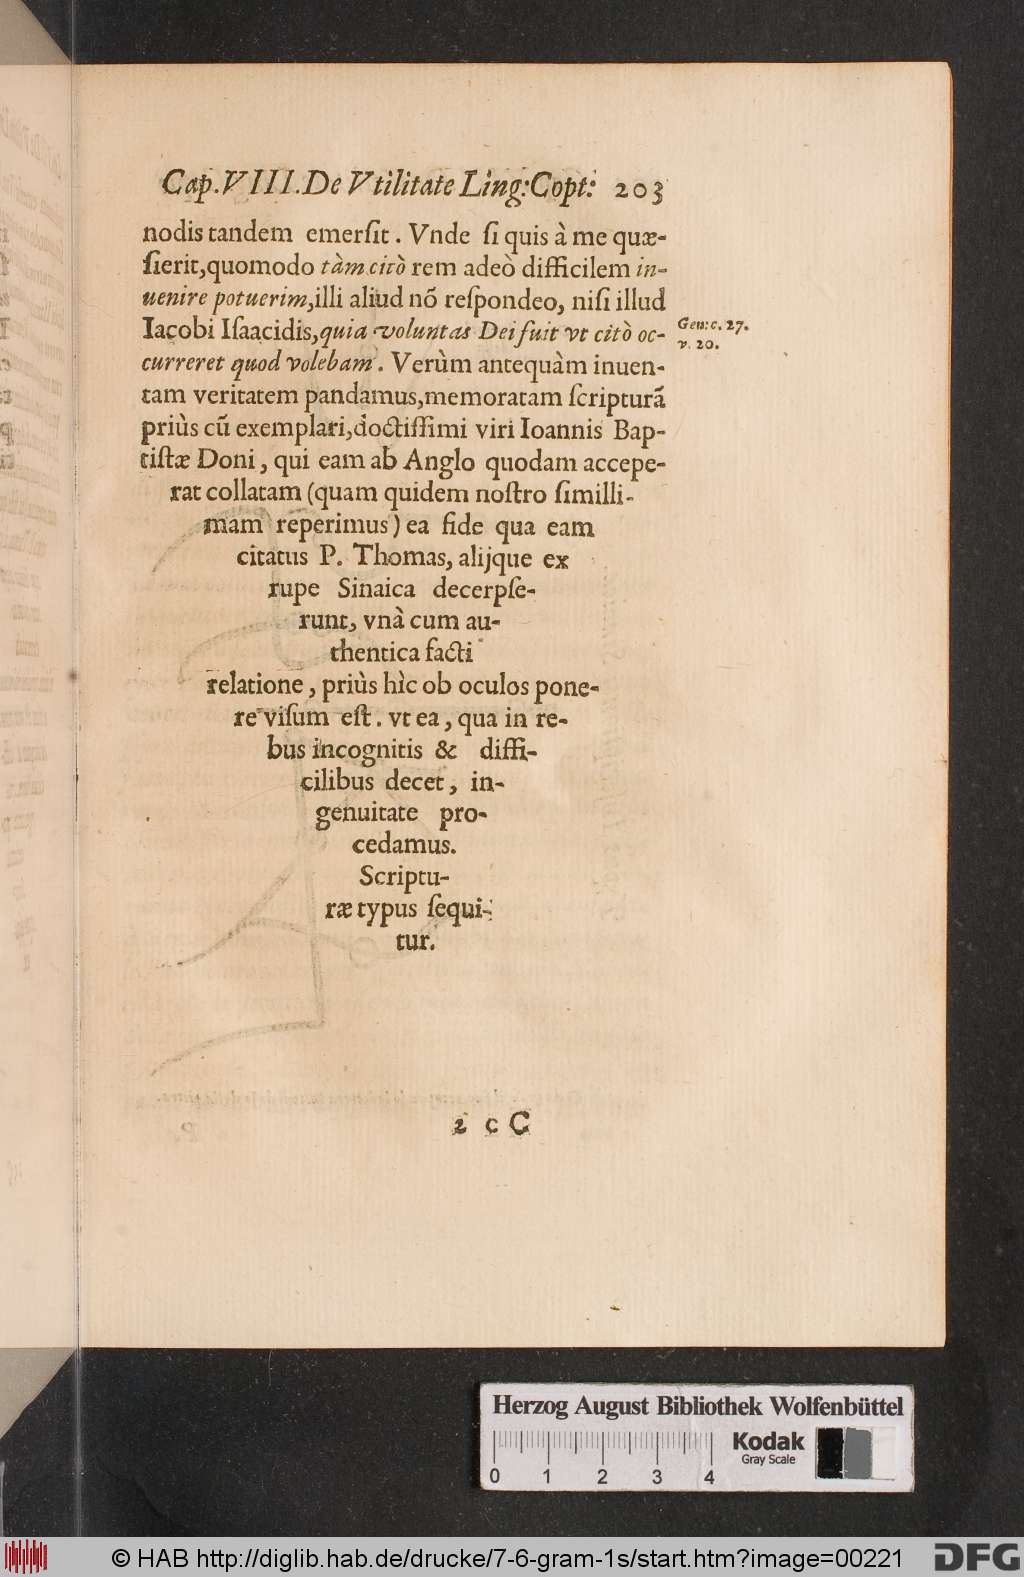 Cap. VIII. De Vtilitate Ling: Copt: 203
nodis tandem emersit. Vnde si quis à me quæ-
sierit, quomodo tàm citò rem adeò difficilem in-
uenire potuerim, illi aliud nõ respondeo, nisi illud
Iacobi Isaacidis, quia voluntas Dei fuit vt citò oc-
Gen: c. 27.
v. 20.
curreret quod volebam. Verùm antequàm inuen-
tam veritatem pandamus, memoratam scripturã
priùs cũ exemplari, doctissimi viri Ioannis Bap-
tistæ Doni, qui eam ab Anglo quodam accepe-
rat collatam (quam quidem nostro simili-
mam reperimus) ea fide qua eam
citatus P. Thomas, alijque ex
rupe Sinaica decerpse-
runt, vnà cum au-
thentica facti
relatione, priùs hìc ob oculos pone-
re visum est. vt ea, qua in re-
bus incognitis & diffi-
cilibus decet, in-
genuitate pro-
cedamus.
Scriptu-
ræ typus sequi-
tur.
2 c C
Herzog August Bibliothek Wolfenbüttel
Kodak
Gray Scale
0 1 2 3 4
© HAB http://diglib.hab.de/drucke/7-6-gram-1s/start.htm?image=00221
DFG